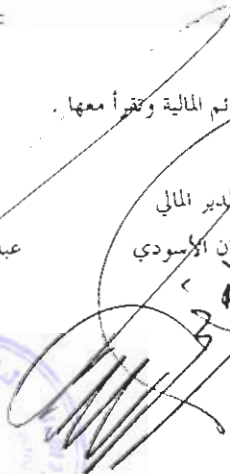 ئم المالية وتقرأ معها .
لدير المالي
ان الأسودي
عبد